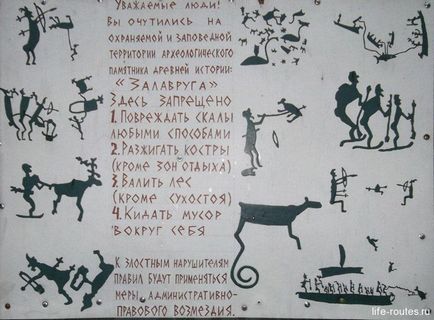 Уважаемые люди!
Вы очутились на
охраняемой и заповедной
территории археологического
памятника древней истории:
«Залавруга»
Здесь запрещено
1. Повреждать скалы
любыми способами
2. Разжигать костры
(кроме зон отдыха)
3. Валить лес
(кроме сухостоя)
4. Кидать мусор
вокруг себя
К злостным нарушителям
правил будут применяться
меры административно-
правового возмездия.
life-routes.ru